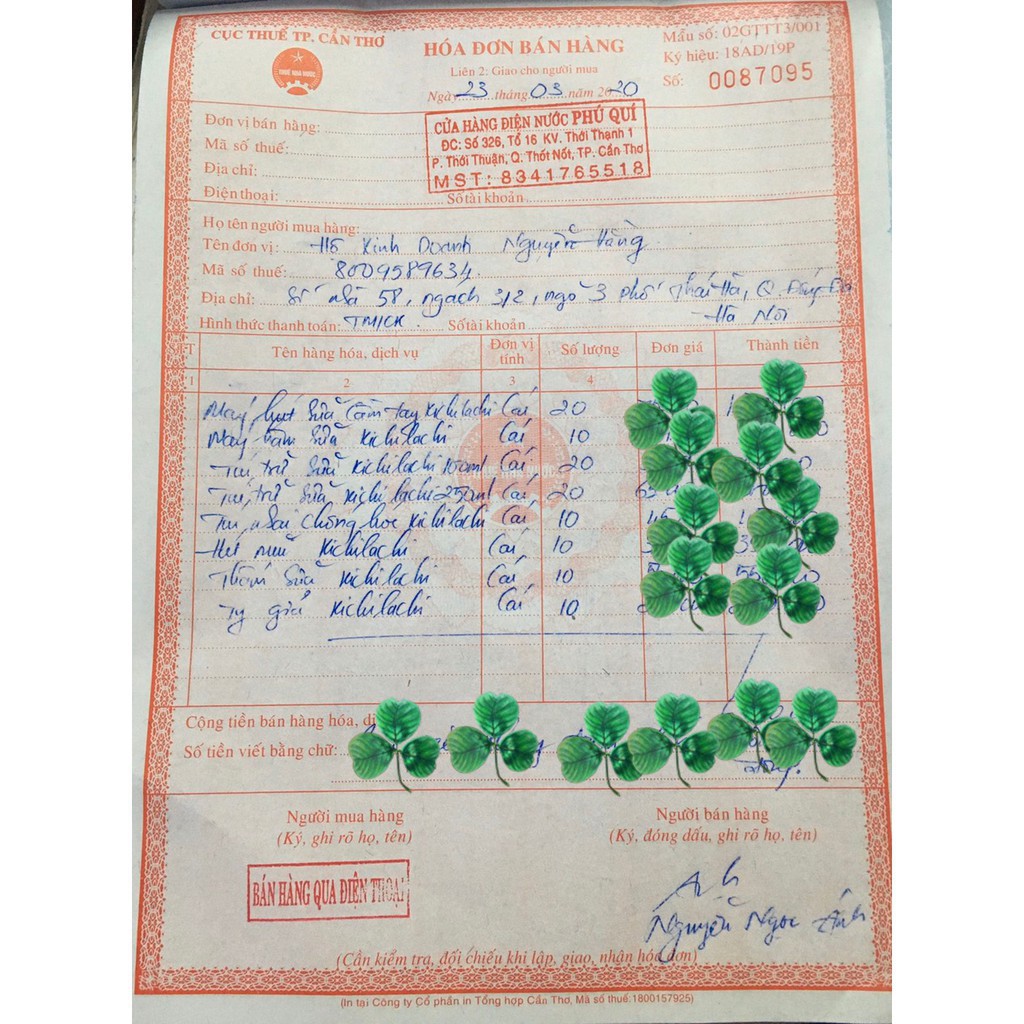 CỤC THUẾ TP. CẦN THƠ
THUẾ NHÀ NƯỚC
HÓA ĐƠN BÁN HÀNG
Liên 2: Giao cho người mua
Ngày 23 tháng 03 năm 2020
Mẫu số: 02GTTT3/001
Ký hiệu: 18AD/19P
Số: 0087095
Đơn vị bán hàng:
Mã số thuế:
Địa chỉ:
Điện thoại: Số tài khoản
CỬA HÀNG ĐIỆN NƯỚC PHÚ QUÍ
ĐC: Số 326, Tổ 16 KV. Thới Thạnh 1
P. Thới Thuận, Q. Thốt Nốt, TP. Cần Thơ
MST: 8341765518
Họ tên người mua hàng:
Tên đơn vị: Hộ Kinh Doanh Nguyễn Hằng
Mã số thuế: 8009589634.
Địa chỉ: Số nhà 58, ngách 3/2, ngõ 3 phố Thái Hà, Q. Đống Đa
Hà Nội
Hình thức thanh toán: TM/CK. Số tài khoản
Tên hàng hóa, dịch vụ Đơn vị tính Số lượng Đơn giá Thành tiền
1 2 3 4
Máy hút sữa cầm tay Kichilachi Cái 20
Máy hâm sữa Kichilachi Cái 10
Túi trữ sữa Kichilachi 100ml Cái 20
Túi trữ sữa Kichilachi 250ml Cái 20
Kichilachi Cái 10
Kichilachi Cái 10
Thấm sữa Kichilachi Cái 10
Ty giả Kichilachi Cái 10
Cộng tiền bán hàng hóa,
Số tiền viết bằng chữ:
đồng.
Người mua hàng
(Ký, ghi rõ họ, tên)
Người bán hàng
(Ký, đóng dấu, ghi rõ họ, tên)
BÁN HÀNG QUA ĐIỆN THOẠI
Nguyễn Ngọc Ánh
(Cần kiểm tra, đối chiếu khi lập, giao, nhận hóa đơn)
(In tại Công ty Cổ phần in Tổng hợp Cần Thơ, Mã số thuế: 1800157925)